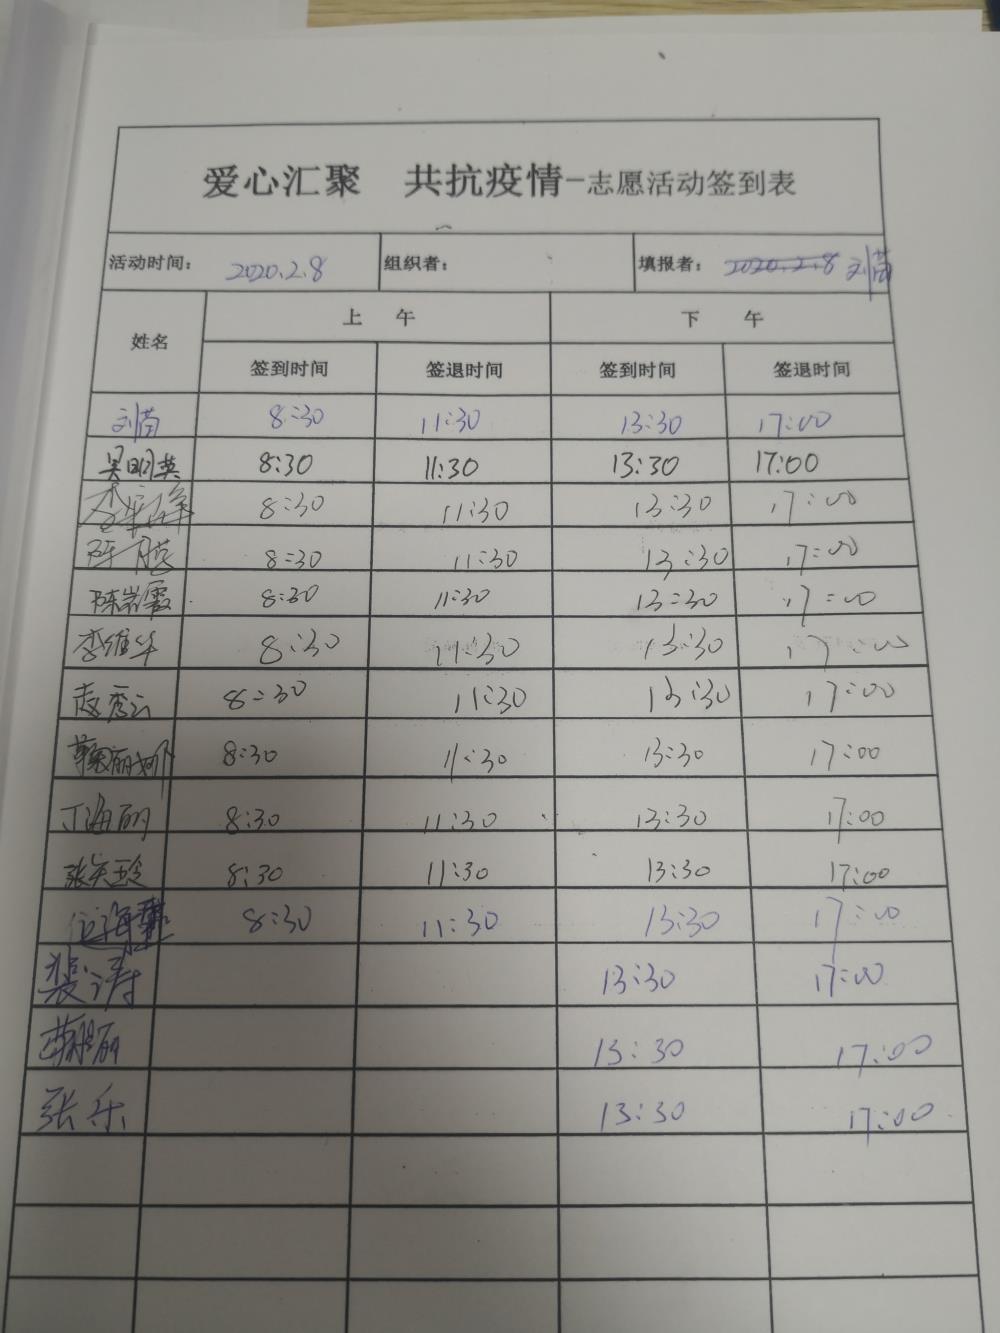 爱心汇聚 共抗疫情-志愿活动签到表
活动时间： 2020.2.8 组织者： 填报者： 2020.2.8 刘苗
姓名 上 午 下 午
签到时间 签退时间 签到时间 签退时间
刘苗 8:30 11:30 13:30 17:00
吴明英 8:30 11:30 13:30 17:00
8:30 11:30 13:30 17:00
8:30 11:30 13:30 17:00
陈岩霞 8:30 11:30 13:30 17:00
李维华 8:30 11:30 13:30 17:00
赵秀云 8:30 11:30 13:30 17:00
鞠丽娜 8:30 11:30 13:30 17:00
丁海丽 8:30 11:30 13:30 17:00
张美玲 8:30 11:30 13:30 17:00
8:30 11:30 13:30 17:00
裴涛 13:30 17:00
13:30 17:00
张乐 13:30 17:00